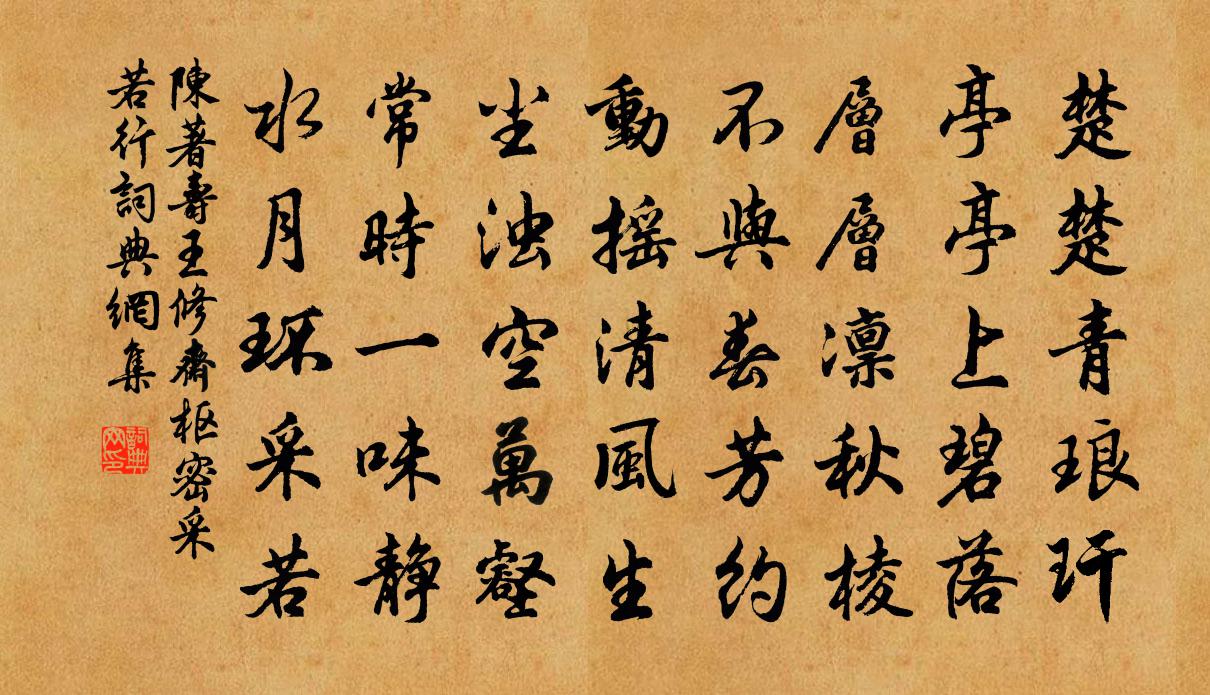 楚楚青琅玕
亭亭上碧落
層層凛秋棱
不與春芳約
動摇清風生
尘浊空萬壑
常時一味静
水月环采若
陳著壽王修齋枢密采
若行詞典網集
詞典網印